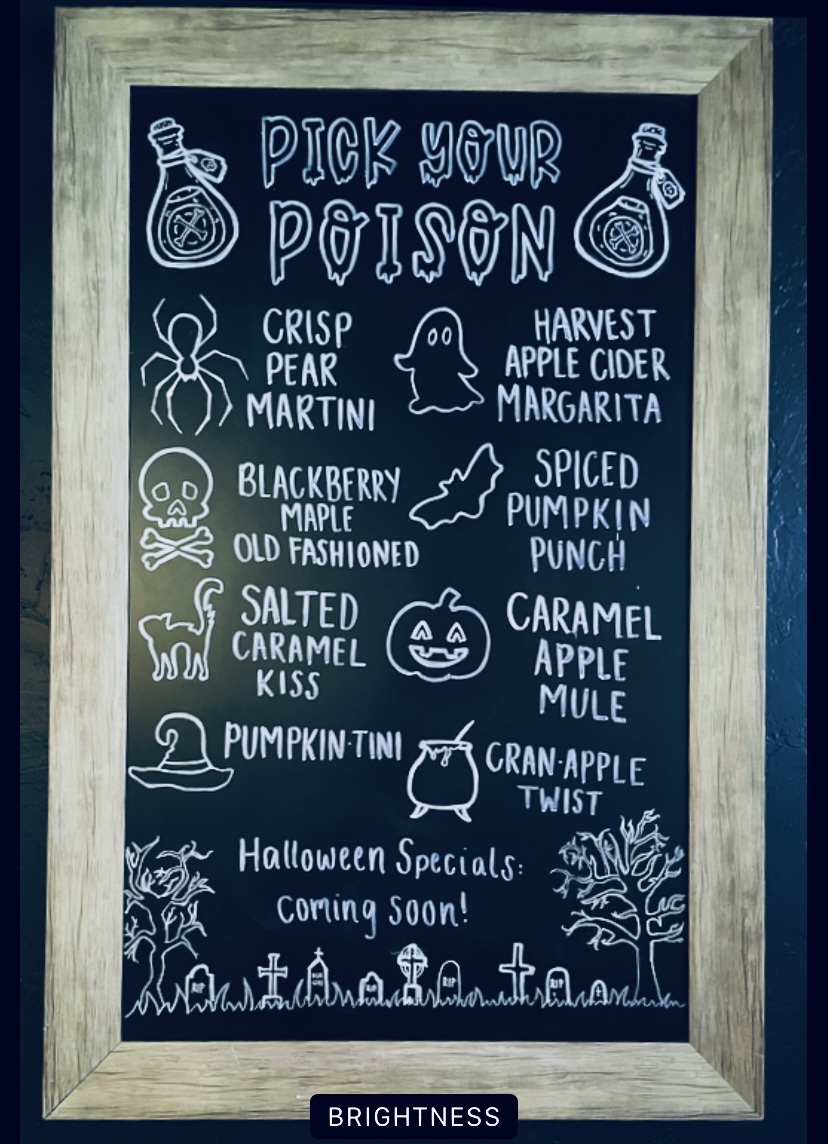 PICK YOUR
POISON
CRISP
PEAR
MARTINI
HARVEST
APPLE CIDER
MARGARITA
BLACKBERRY
MAPLE
OLD FASHIONED
SPICED
PUMPKIN
PUNCH
SALTED
CARAMEL
KISS
CARAMEL
APPLE
MULE
PUMPKIN·TINI
CRAN·APPLE
TWIST
Halloween Specials:
coming soon!
RIP
RIP
BRIGHTNESS